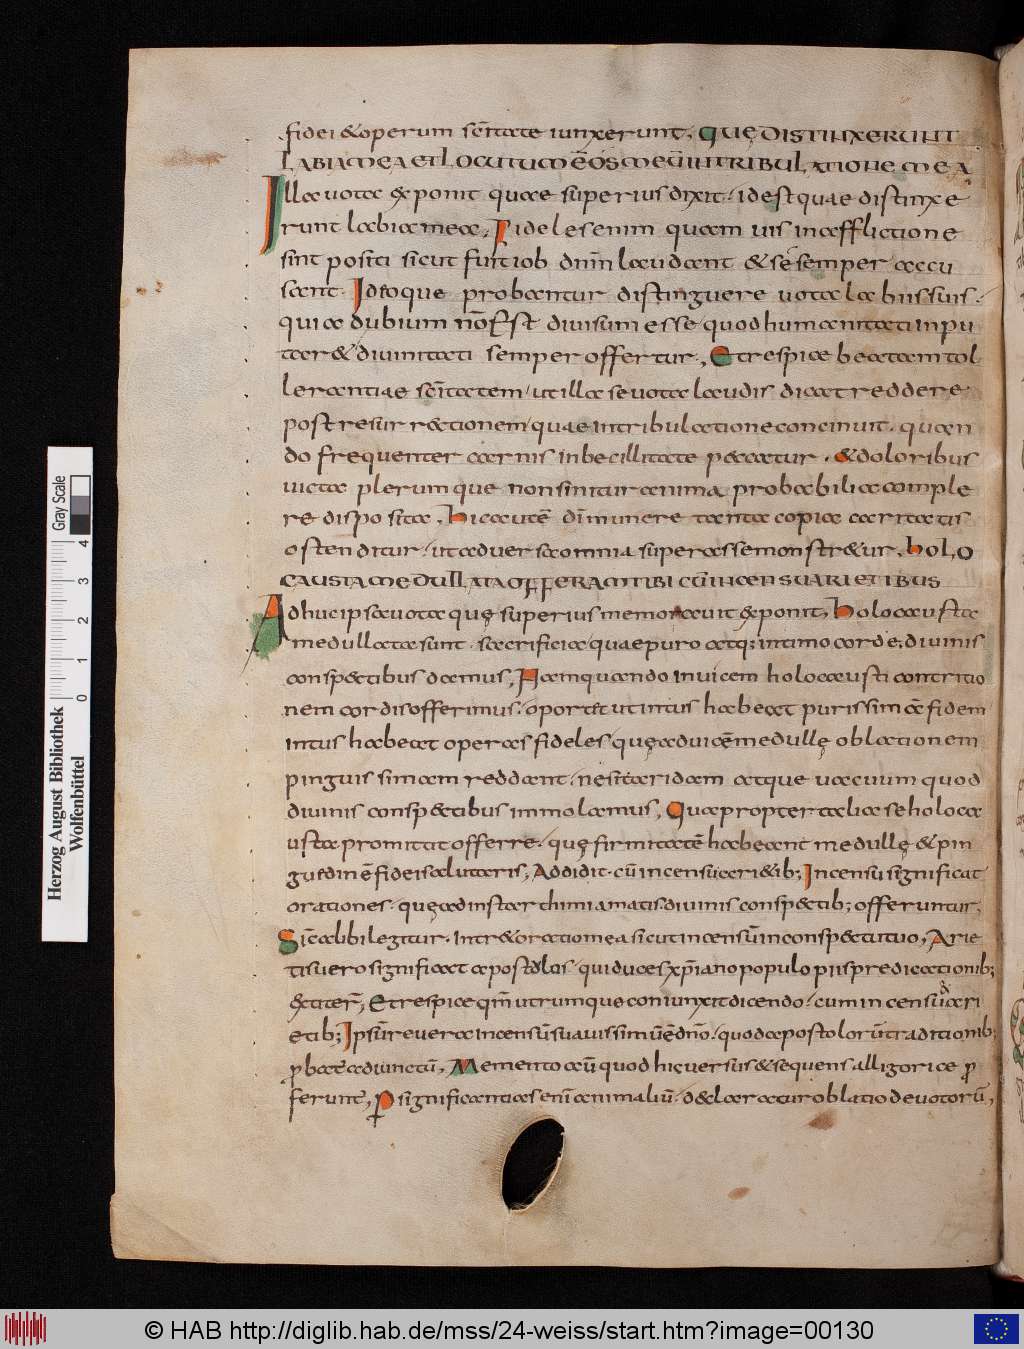 fidei & operum sc̄itate iunxerunt. QUĘ DISTINXERUNT
LABIA MEA ET LOCUTUM Ē OS MEŪ IN TRIBULATIONE MEA
Illa uota exponit quae superius dixit. id est quae distinxe
runt labia mea. Fideles enim quam uis in afflictione
sint positi sicut fuit iob dnm̄ laudant & se semper accu
sant. Ideoque probantur distinguere uota labiis suis.
quia dubium nōn Est diuisum esse quod humanitati inpu
tar& diuinitati semper offertur, Et respice beatam tol
lerantiae scītatem ut illa se uota laudis dicat reddere
post resurrectionem quae in tribulatione concinuit. quan
do frequenter carnis inbecillitate peccatur. & doloribus
uicta plerumque non sinitur anima probabilia comple
re disposita, Hic autē dī munere tanta copia caritatis
ostenditur. ut aduersa omnia superasse monstr&ur. HOLO
CAUSTA MEDULLATA OFFERAM TIBI CŪ INCENSU ARIETIBUS
Adhuc ipsa uota quę superius memorauit exponit, Holocausta
medullata sunt. sacrificia quae puro atq; intimo corde; diuinis
conspectibus damus, Nam quando inuicem holocausti contritio
nem cordis offerimus. oportet ut intus habeat purissimā fidem
intus habeat operas fideles. quę ad uicē medullę oblationem
pinguissimam reddant. ne sit arida atque uacuum quod
diuinis conspectibus immolamus, Quapropter talia se holoca
usta promittit offerre. quę firmitatē habeant medullę & pin
guedinē fidei salutaris, Addidit. cū incensu & arietib; Incensu significat
orationes. quę ad instar thimiamatis. diuinis conspectib; offeruntur,
Sic̄ alibi legitur. Intr& oratio mea sicut incensū in conspectu tuo, Arie
tis uero significat apostolos. qui duces xp̄iano populo piis predicationib;
extiter̄, Et respice qm̄ utrumque coniunxit dicendo. cum incensu & ari
etib; Ipsūm reuera incensū suauissimū ē dn̄o. quod apostolorū traditionib;
probatē adiunctū, Memento aūt quod hic uersus & sequens. alligorice pro
ferunt̄, Per significantias enī animaliū. declaratur oblatio deuotorū,
Herzog August Bibliothek
Wolfenbüttel
0 1 2 3 4
Gray Scale
© HAB http://diglib.hab.de/mss/24-weiss/start.htm?image=00130